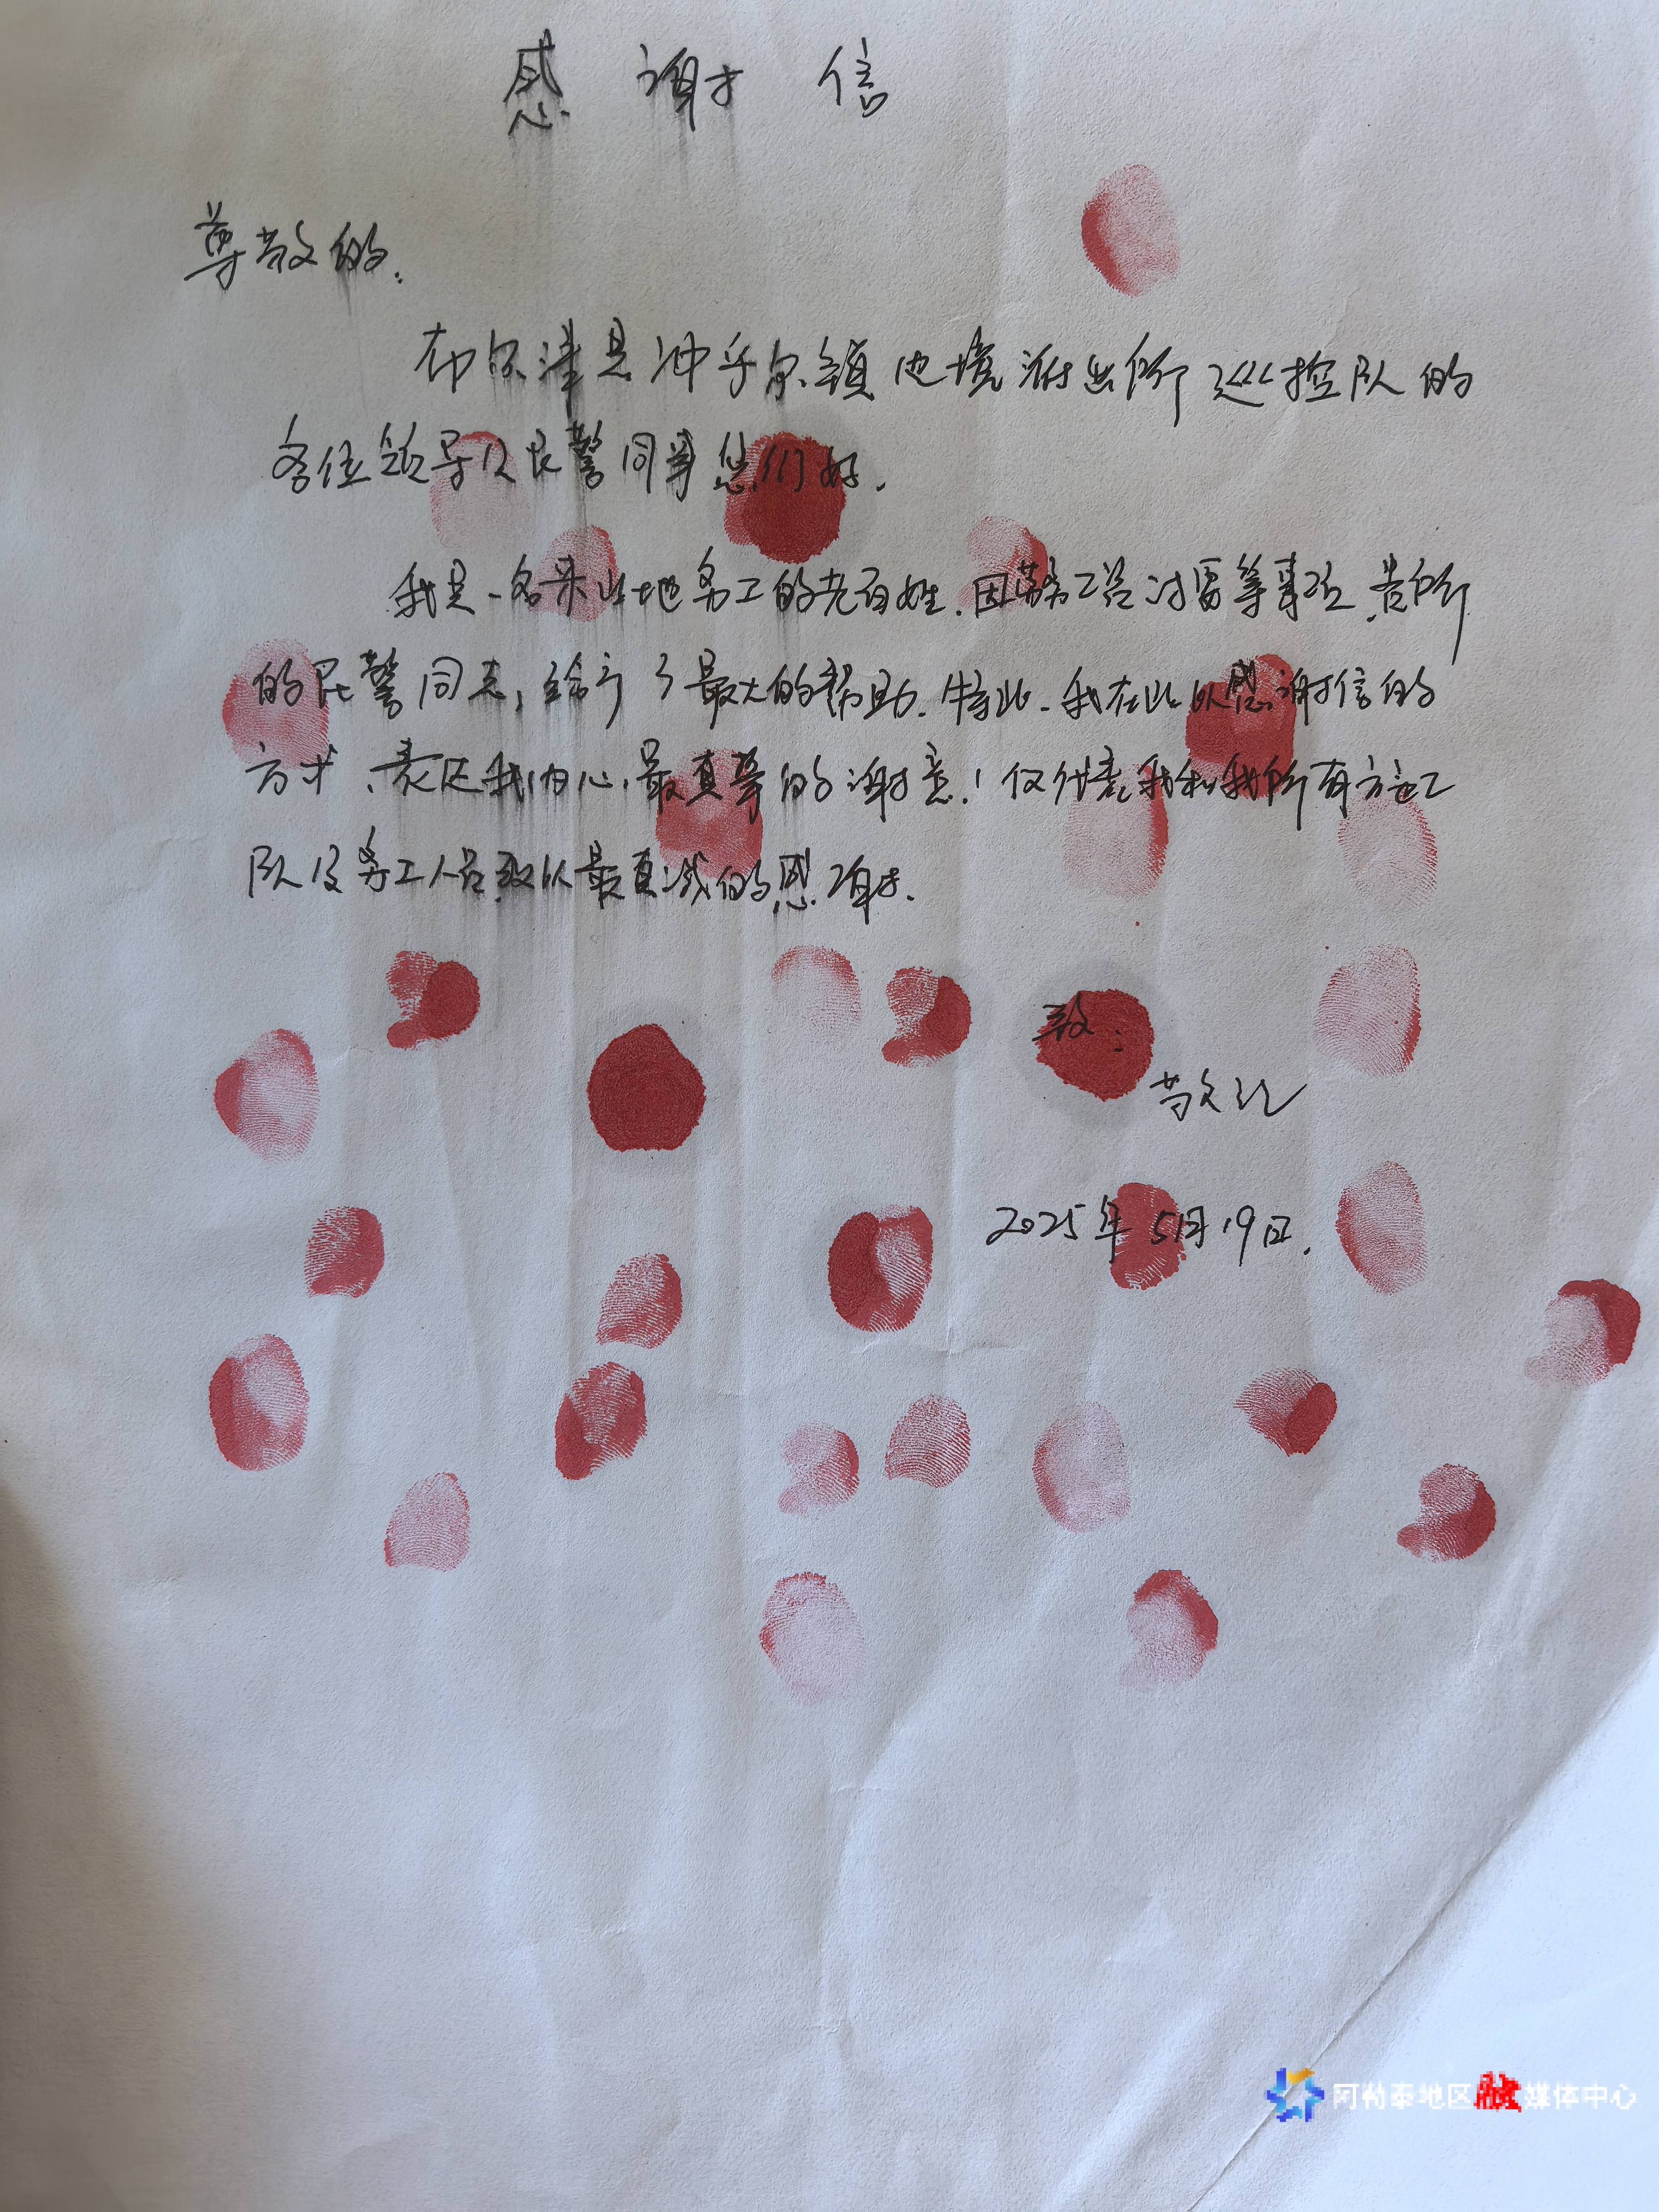 感谢信
尊敬的:
布尔津县冲乎尔镇边境派出所巡控队的
各位领导及民警同事您们好.
我是一名来当地务工的老百姓.因劳务工资讨要等事项,贵所
的民警同志,给予了最大的帮助.特此.我在此以感谢信的
方式、表达我内心最真挚的谢意!仅代表我和我所有施工
队及务工人员致以最真诚的感谢.
致:
敬礼
2025年5月19日.
阿勒泰地区融媒体中心